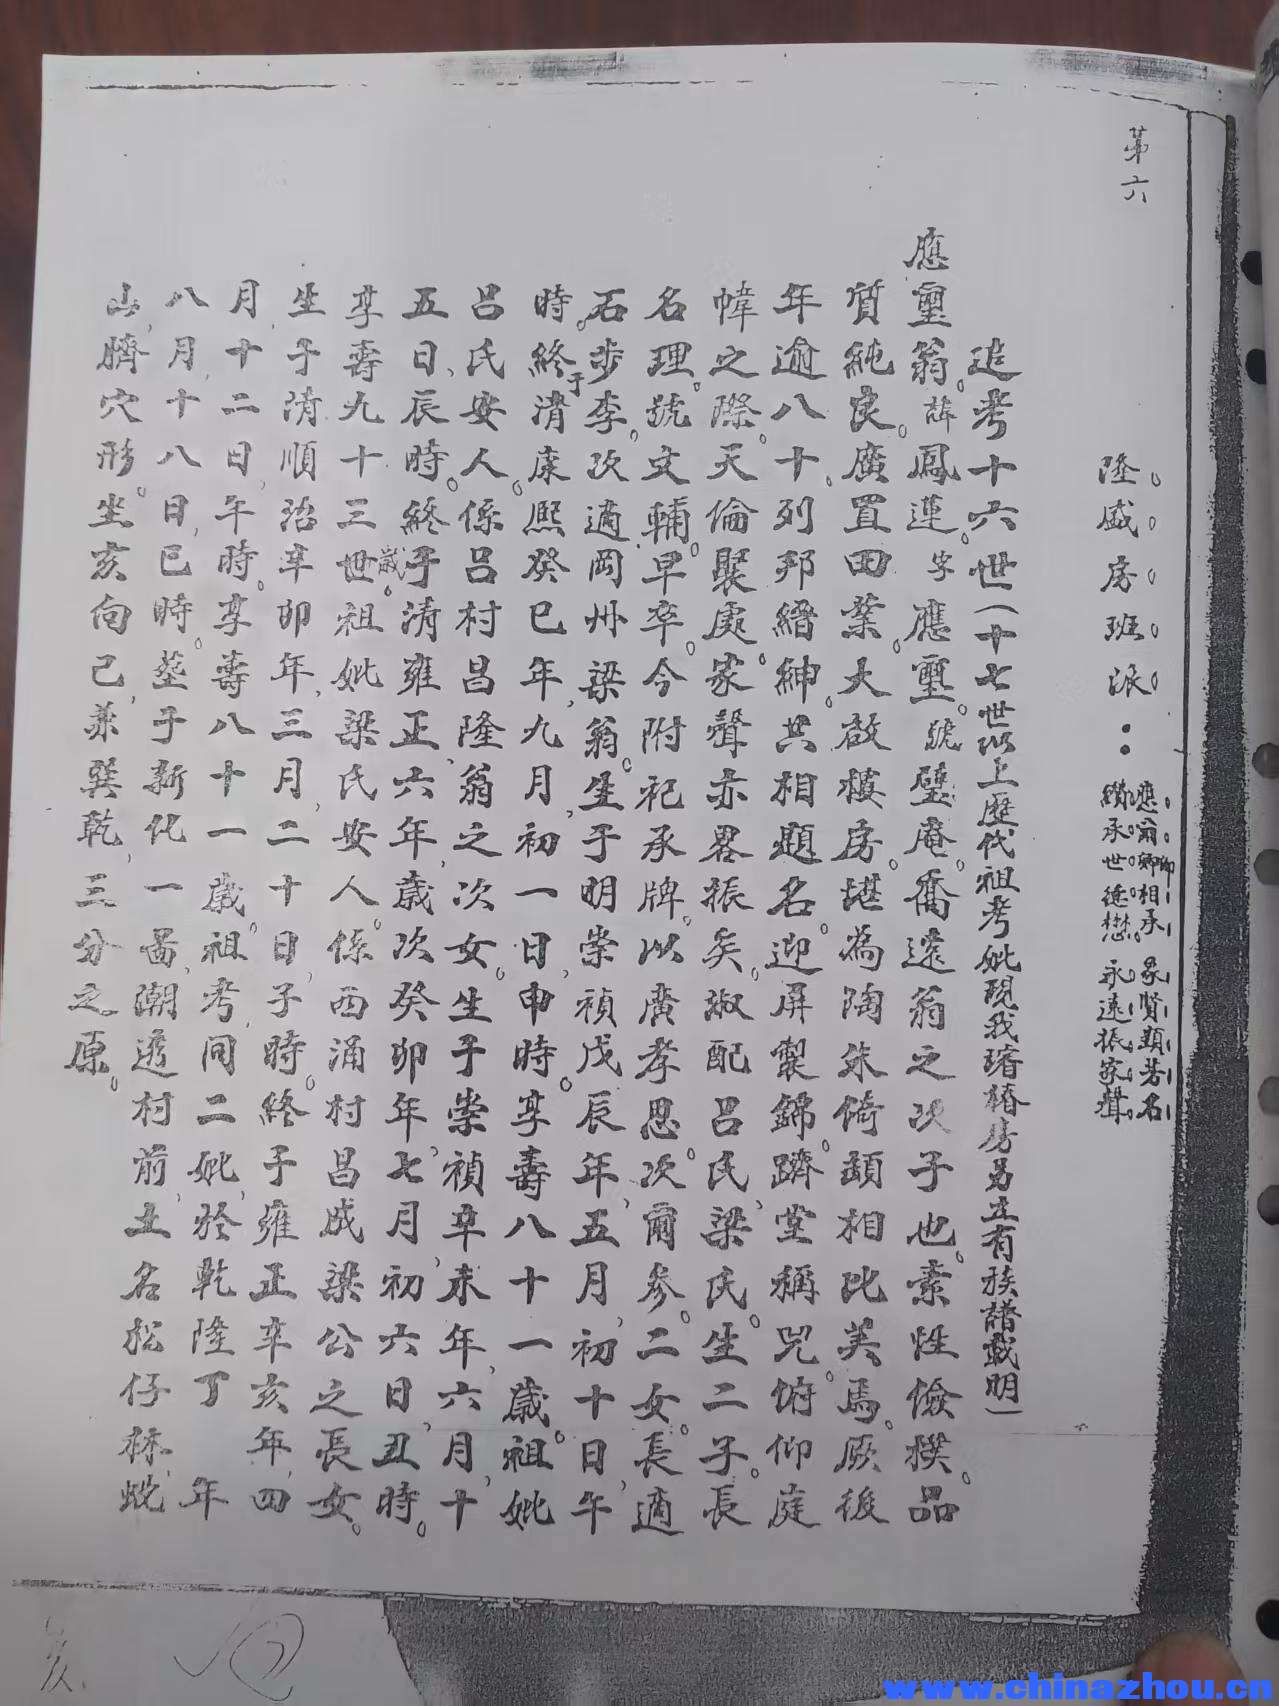 第六
隆盛房班派：
應翕卿相承 象賢顯著名
纘承世德懋 永遠振家聲
追考十六世(十七世以上歷代祖考妣現我璿椿房另立有族譜載明)
應璽翁。諱鳳蓮。字應璽。號璧庵。喬遠翁之次子也。素性儉樸。品
質純良。廣置田業。大啟樓房。堪為陶朱倚頓相比美焉。厥後
年逾八十。列邦縉紳。共相題名。迎屏製錦。躋堂稱兕。俯仰庭
幃之際。天倫聚處。家聲亦畧振矣。淑配呂氏梁氏。生二子。長
名理。號文輔。早卒。今附祀承牌。以廣孝思。次爾參。二女。長適
石步李。次適岡州梁翁。生于明崇禎戊辰年五月初十日午
時。終于清康熙癸巳年九月初一日申時。享壽八十一歲。祖妣
呂氏安人。係呂村昌隆翁之次女。生于崇禎辛未年六月十
五日辰時。終于清雍正六年歲次癸卯年七月初六日丑時。
享壽九十三歲。世祖妣梁氏安人。係西涌村昌成梁公之長女。
生于清順治辛卯年三月二十日子時。終于雍正辛亥年四
月十二日午時。享壽八十一歲。祖考同二妣於乾隆丁 年
八月十八日巳時。塟于新化一啚潮透村前土名松仔林蛻
山臍穴形。坐亥向巳兼巽乾三分之原。
www.chinazhou.cn